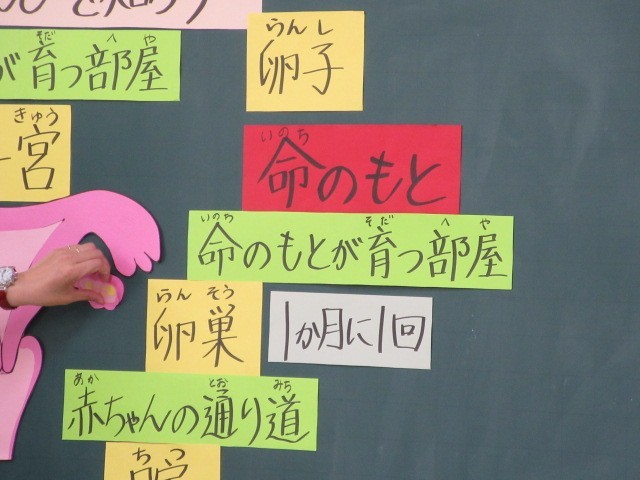 が育つ部屋
そだ へ や
宮
きゅう
らん し
卵子
いのち
命のもと
いのち そだ へ や
命のもとが育つ部屋
らん そう
卵巣
1か月に1回
あか とお みち
赤ちゃんの通り道
ち つ